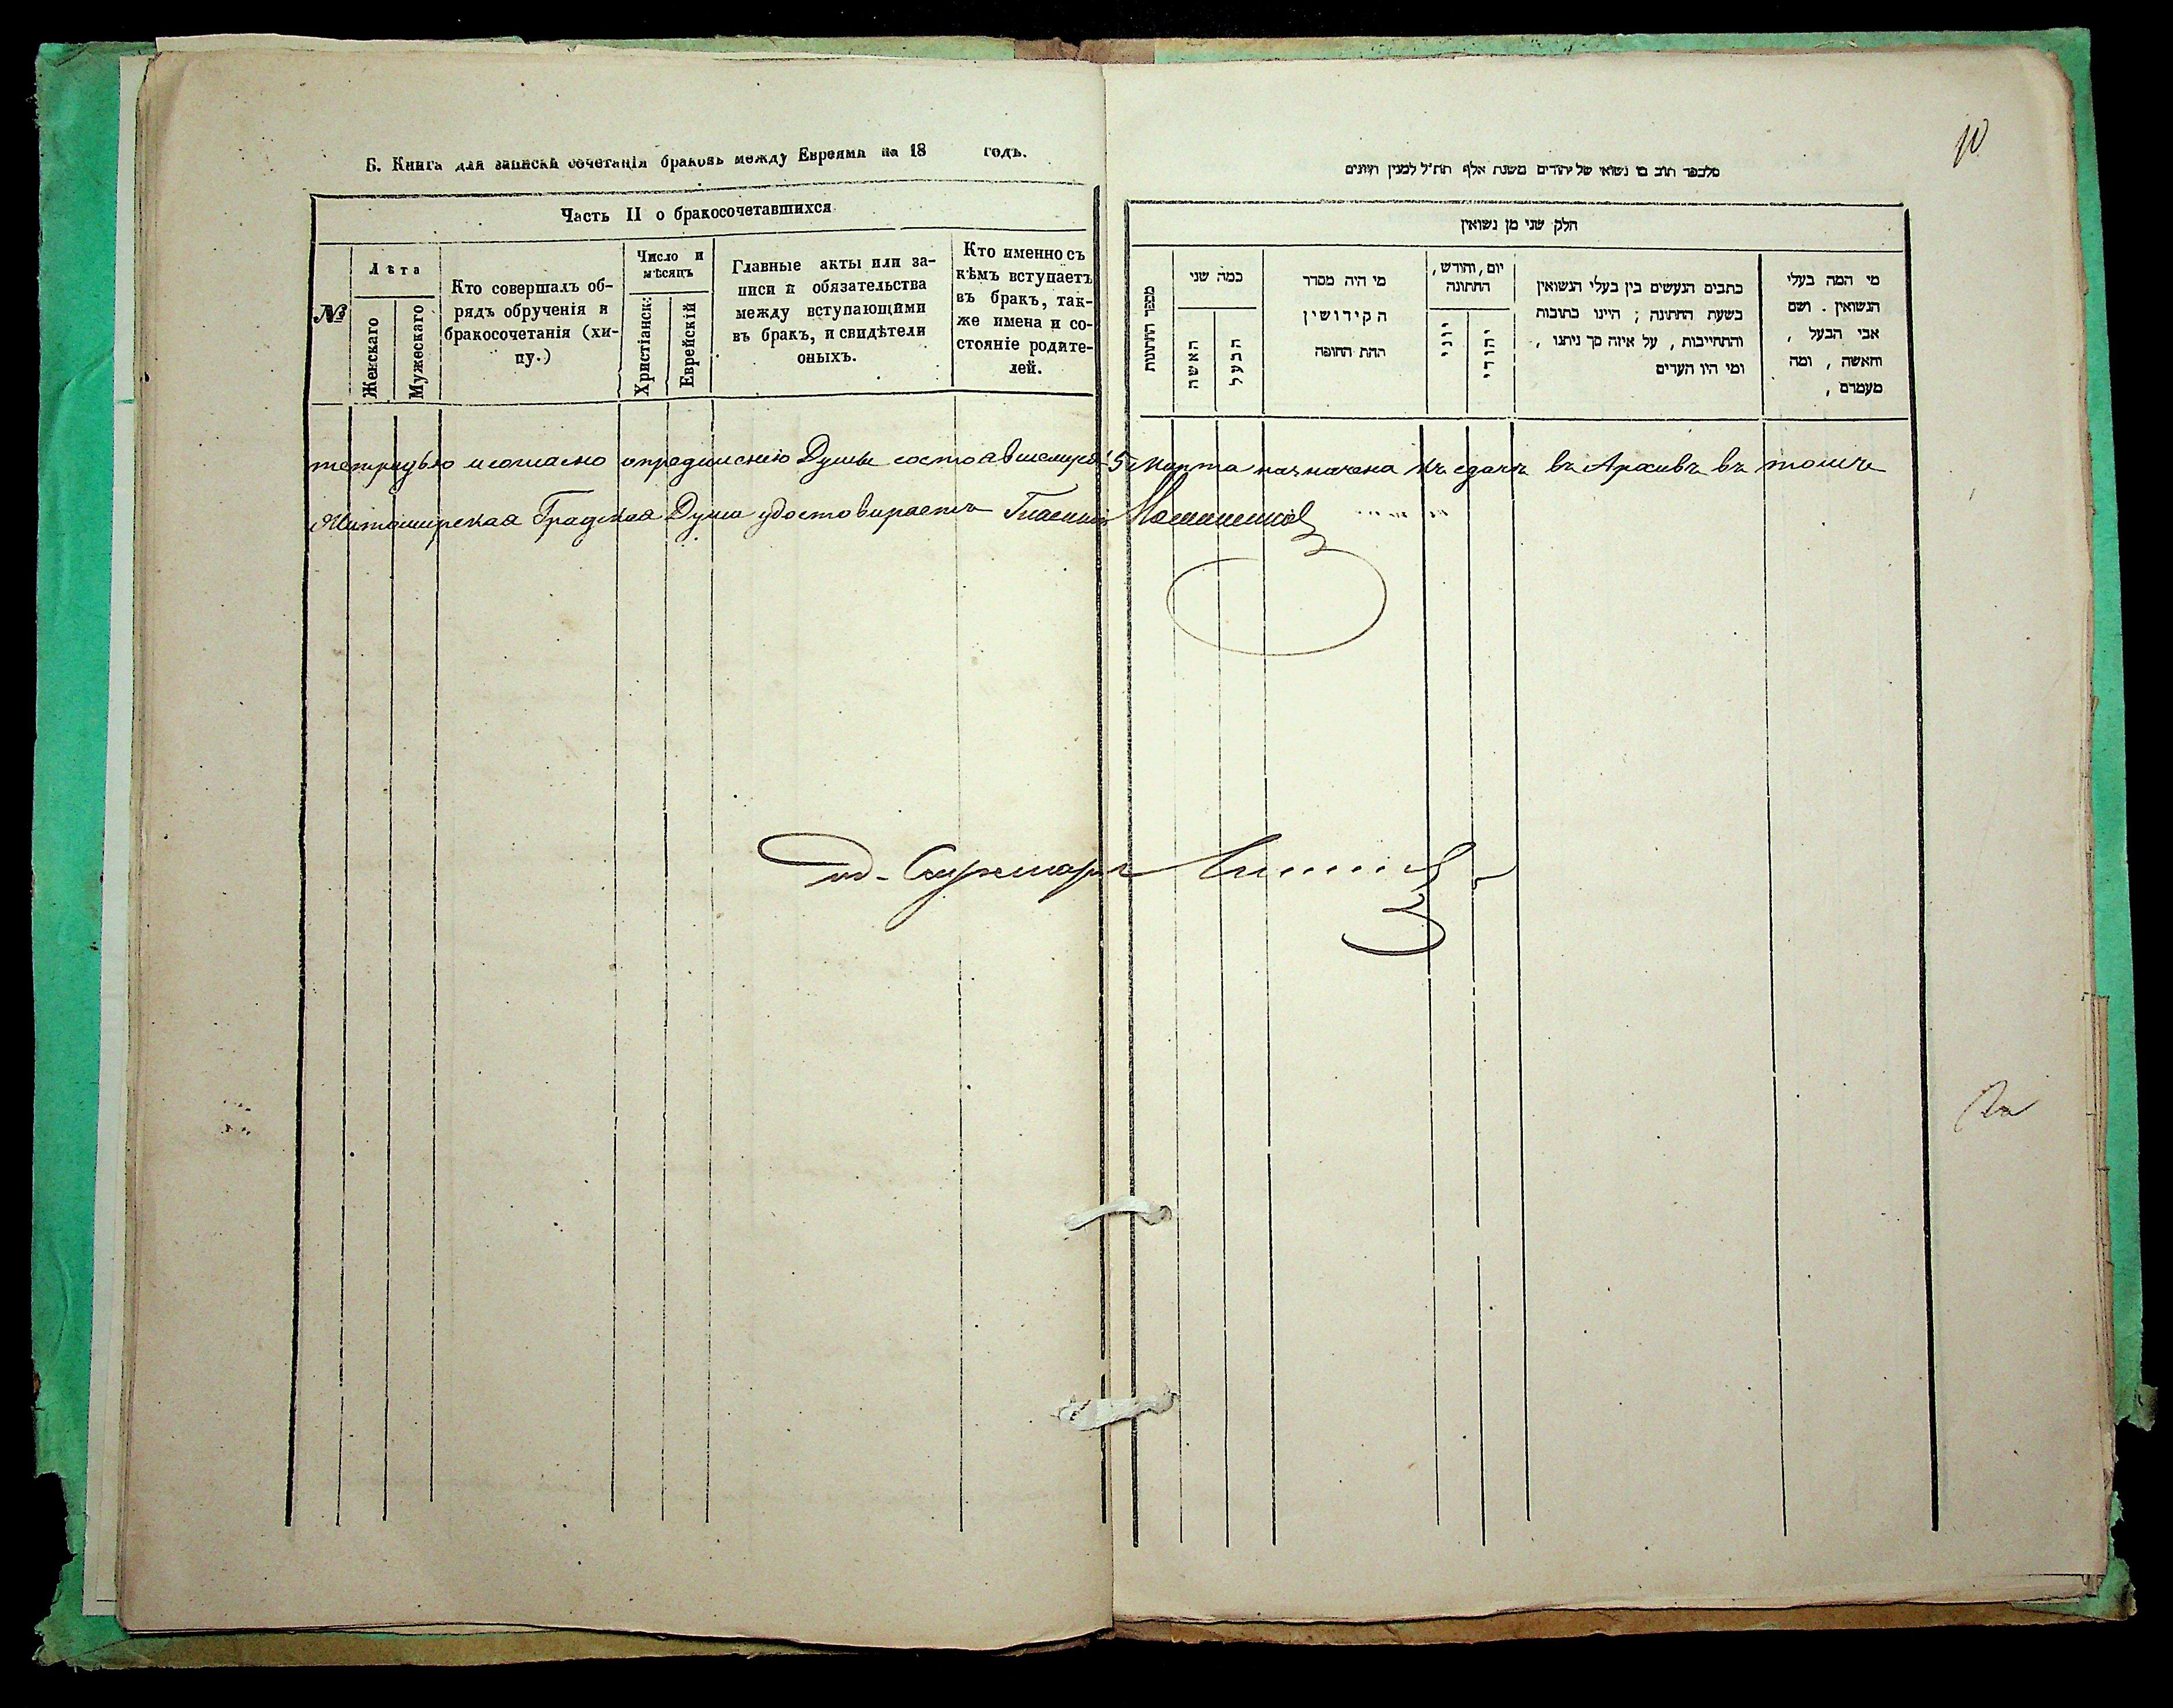 Б. Книга для записки сочетанія браковъ между Евреями на 18 годъ.
Часть II о бракосочетавшихся
№
Лѣта
Женскаго
Мужескаго
Кто совершалъ об-
рядъ обрученія и
бракосочетанія (хи-
пу.)
Число и
мѣсяцъ
Христіанск:
Еврейскій
Главные акты или за-
писи и обязательства
между вступающими
въ бракъ, и свидѣтели
оныхъ.
Кто именно съ
кѣмъ вступаетъ
въ бракъ, так-
же имена и со-
стояніе родите-
лей.
10
של יהודים משנת אלף תת״ל למנין
חלק שני מן נשואין
מספר החתונות
כמה שני
האשה
הבעל
מי היה מסדר
הקידושין
תחת החופה
יום, וחודש,
החתונה
יוני
יהודי
כתבים הנעשים בין בעלי הנשואין
בשעת החתונה ; היינו כתובות
והתחייבות , על איזה סך ניתנו ,
ומי היו העדים
מי המה בעלי
הנשואין . ושם
אבי הבעל ,
והאשה , ומה
מעמדם ,
тетрадью и согласно опредѣленію Думы состоявшемуся 15 марта назначена къ сдачѣ въ Архивъ въ томъ
Житомирская Градская Дума удостовѣряетъ Гласный
Секретарь